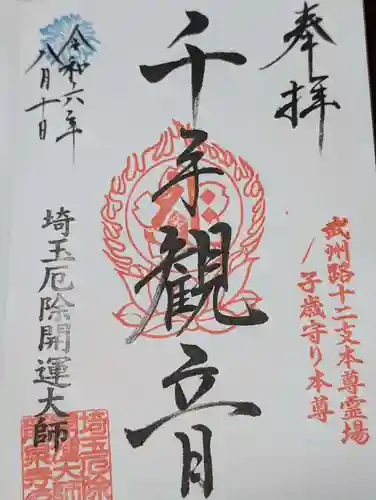 奉拝
武州路十二支本尊霊場
子歳守り本尊
千手観音
埼玉厄除開運大師
令和六年
八月十日
埼玉厄除
開運大師